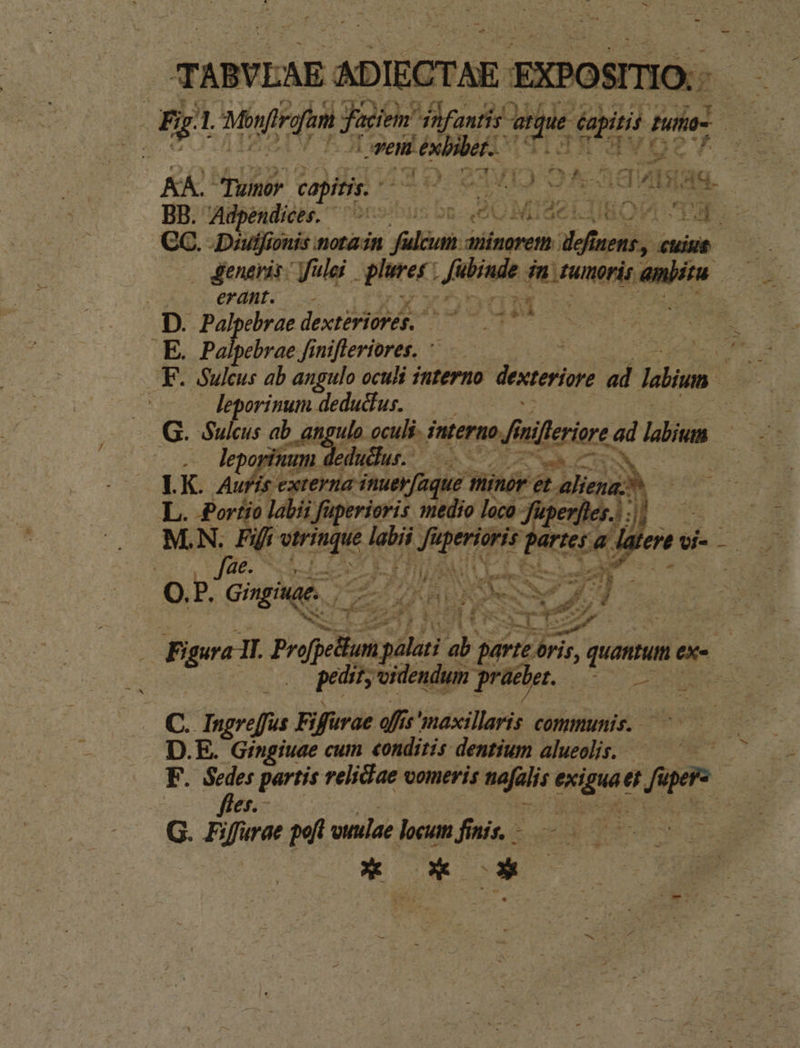 TABVLAE ADIECTAE EXPOSITIO.
Fig. I. Monſtroſam faciem infantis atque capitis tumo-
rem exhibet.
AA. Tumor capitis.
BB. Adpendices.
CC. Diuiſionis nota in ſulcum minorem deſinens, cuius
generis ſulci plures ſubinde in tumoris ambitu
erant.
D. Palpebrae dexteriores.
E. Palpebrae ſiniſteriores.
F. Sulcus ab angulo oculi interno dexteriore ad labium
leporinum deductus.
G. Sulcus ab angulo oculi interno ſiniſteriore ad labium
leporinum deductus.
I.K. Auris externa inuerſaque minor et aliena.
L. Portio labii ſuperioris medio loco ſuperſtes.
M.N. Fiſſi vtrinque labii ſuperioris partes a latere vi-
ſae.
O.P. Gingiuae.
Figura II. Proſpectum palati ab parte oris, quantum ex-
pedit, videndum praebet.
C. Ingreſſus Fiſſurae oſſis maxillaris communis.
D.E. Gingiuae cum conditis dentium alueolis.
F. Sedes partis relictae vomeris naſalis exigua et ſuper-
ſtes.
G. Fiſſurae poſt vuulae locum finis.
* * *